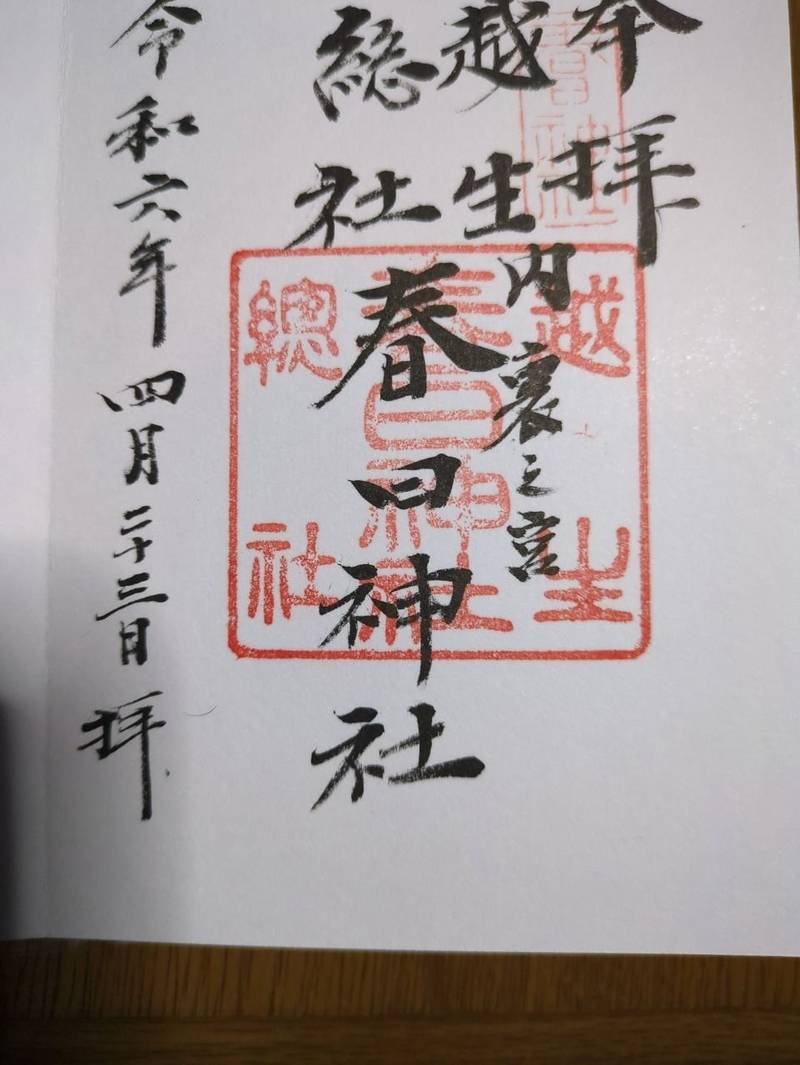 奉拝
越生内裏之宮
総社
春日神社
令和六年四月二十三日拝
越生
春日神社
總社
春日神社